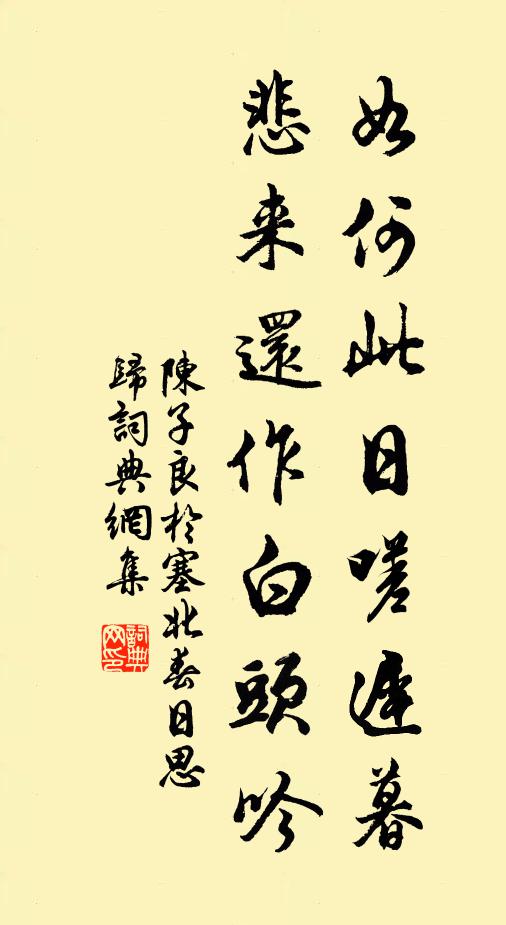 如何此日嗟遲暮
悲来還作白頭吟
陳子良於塞北春日思
歸詞典網集
詞典
网印